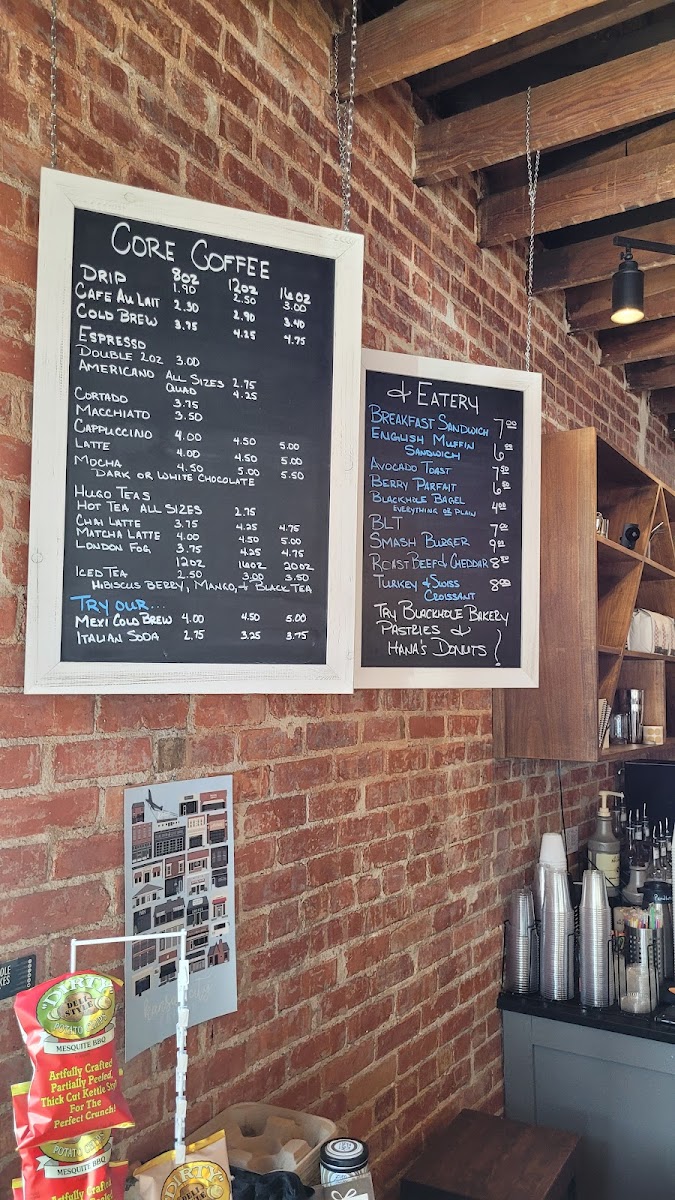 CORE COFFEE
8oz 12oz 16oz
DRIP 1.90 2.50 3.00
CAFE AU LAIT 2.30 2.90 3.40
COLD BREW 3.75 4.25 4.75
ESPRESSO
DOUBLE 2oz 3.00
AMERICANO ALL SIZES 2.75
QUAD 4.25
CORTADO 3.75
MACCHIATO 3.50
CAPPUCCINO 4.00 4.50 5.00
LATTE 4.00 4.50 5.00
MOCHA 4.50 5.00 5.50
DARK OR WHITE CHOCOLATE
HUGO TEAS
HOT TEA ALL SIZES 2.75
CHAI LATTE 3.75 4.25 4.75
MATCHA LATTE 4.00 4.50 5.00
LONDON FOG 3.75 4.25 4.75
12oz 16oz 20oz
ICED TEA 2.50 3.00 3.50
HIBISCUS BERRY, MANGO, & BLACK TEA
TRY OUR...
MEXI COLD BREW 4.00 4.50 5.00
ITALIAN SODA 2.75 3.25 3.75
& EATERY
BREAKFAST SANDWICH 7.00
ENGLISH MUFFIN
SANDWICH 6
AVOCADO TOAST 7
BERRY PARFAIT 6
BLACKHOLE BAGEL 4.00
EVERYTHING OR PLAIN
BLT 7
SMASH BURGER 9
ROAST BEEF & CHEDDAR 8
TURKEY & SWISS 8
CROISSANT
TRY BLACKHOLE BAKERY
PASTRIES &
HANA'S DONUTS!
"DIRTY"
DELI STYLE
POTATO CHIPS
MESQUITE BBQ
Artfully Crafted
Partially Peeled,
Thick Cut Kettle Style
For The
Perfect Crunch!
POTATO CHIPS
MESQUITE BBQ
Artfully Crafted
"DIRTY"
DELI STYLE